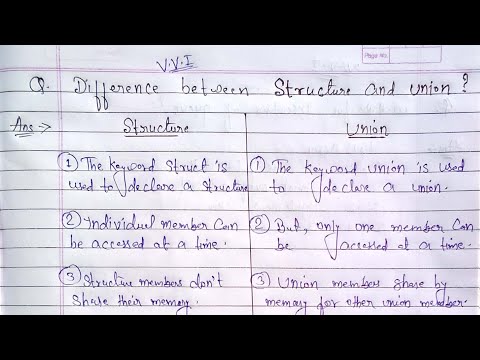 Page No.
V.V.I
Q. Difference between Structure and union?
Ans :->
Structure
① The keyword Struct is
used to declare a structure
② Individual member can
be accessed at a time.
③ Structure members don't
share their memory.
Union
① The keyword union is used
to declare a union.
② But, only one member can
be accessed at a time.
③ Union members share by
memory for other union member.